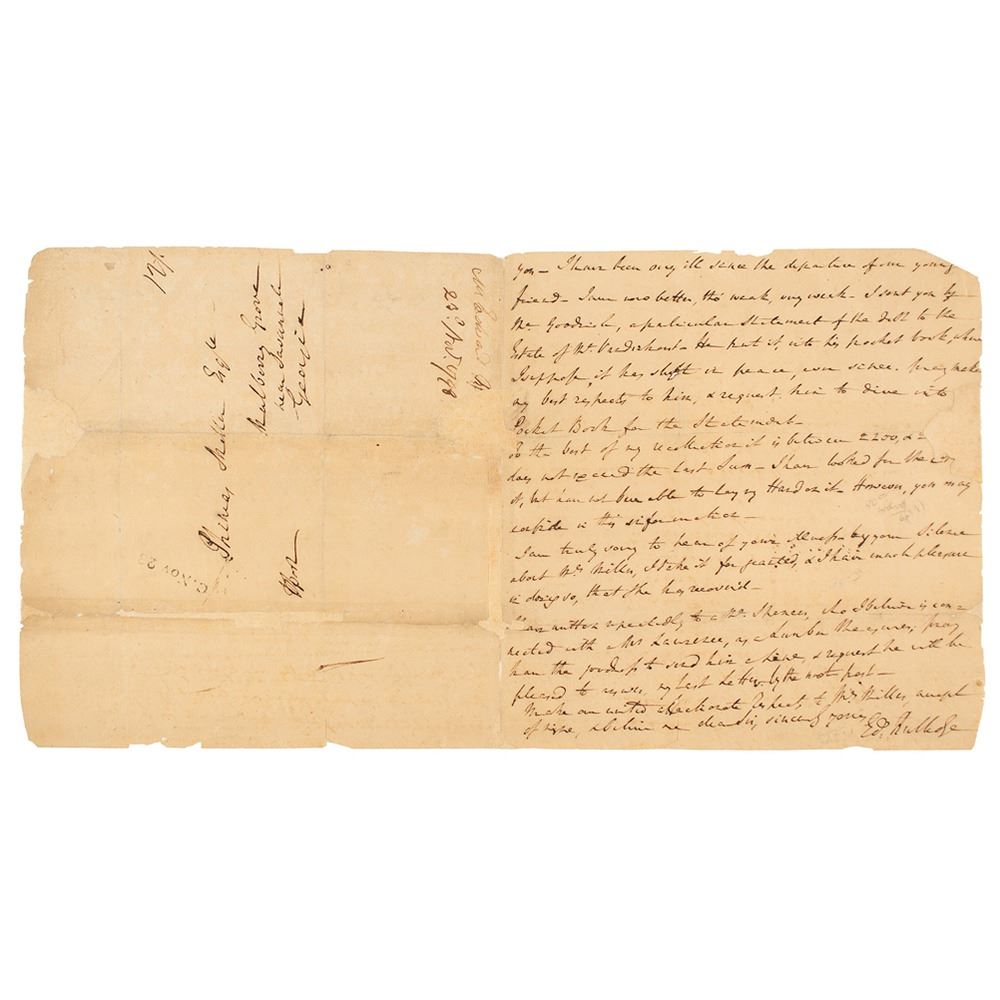 17/.
Phineas Miller Esqr
Mulberry Grove
near Savannah
Georgia
Post
Nov 23
23d Nov. 1798
you – I have been very ill since the departure of our young
friend – I am now better, tho' weak, very week – I sent you by
Mr. Goodrich, a particular Statement of the debt to the
Estate of Mr. – He put it into his pocket book, where
I suppose, it has slept in peace, ever since. make
my best respects to him, & request him to dive into
Pocket Book for the Statement –
To the best of my recollection it is between 2200, &
does not exceed the last Sum – I have looked for the copy
of it, but have not been able to lay my Hand on it – However, you may
confide in this information –
I am truly sorry to hear of your illness – by your Silence
about Mrs. Miller, I take it for granted, & I have much pleasure
in doing so, that she has recover'd –
I have written repeatedly to a Mr. Spencer, who I believe is con=
nected with a Mr Lawrence, as a Lumber pray
have the goodness to send him a line, & request he will be
pleased to answer my last Letter by the next post –
Make our united affectionate Respects to Mrs. Miller, accept
of mine, & believe me dear Sir, sincerely yours
Ed: Rutledge